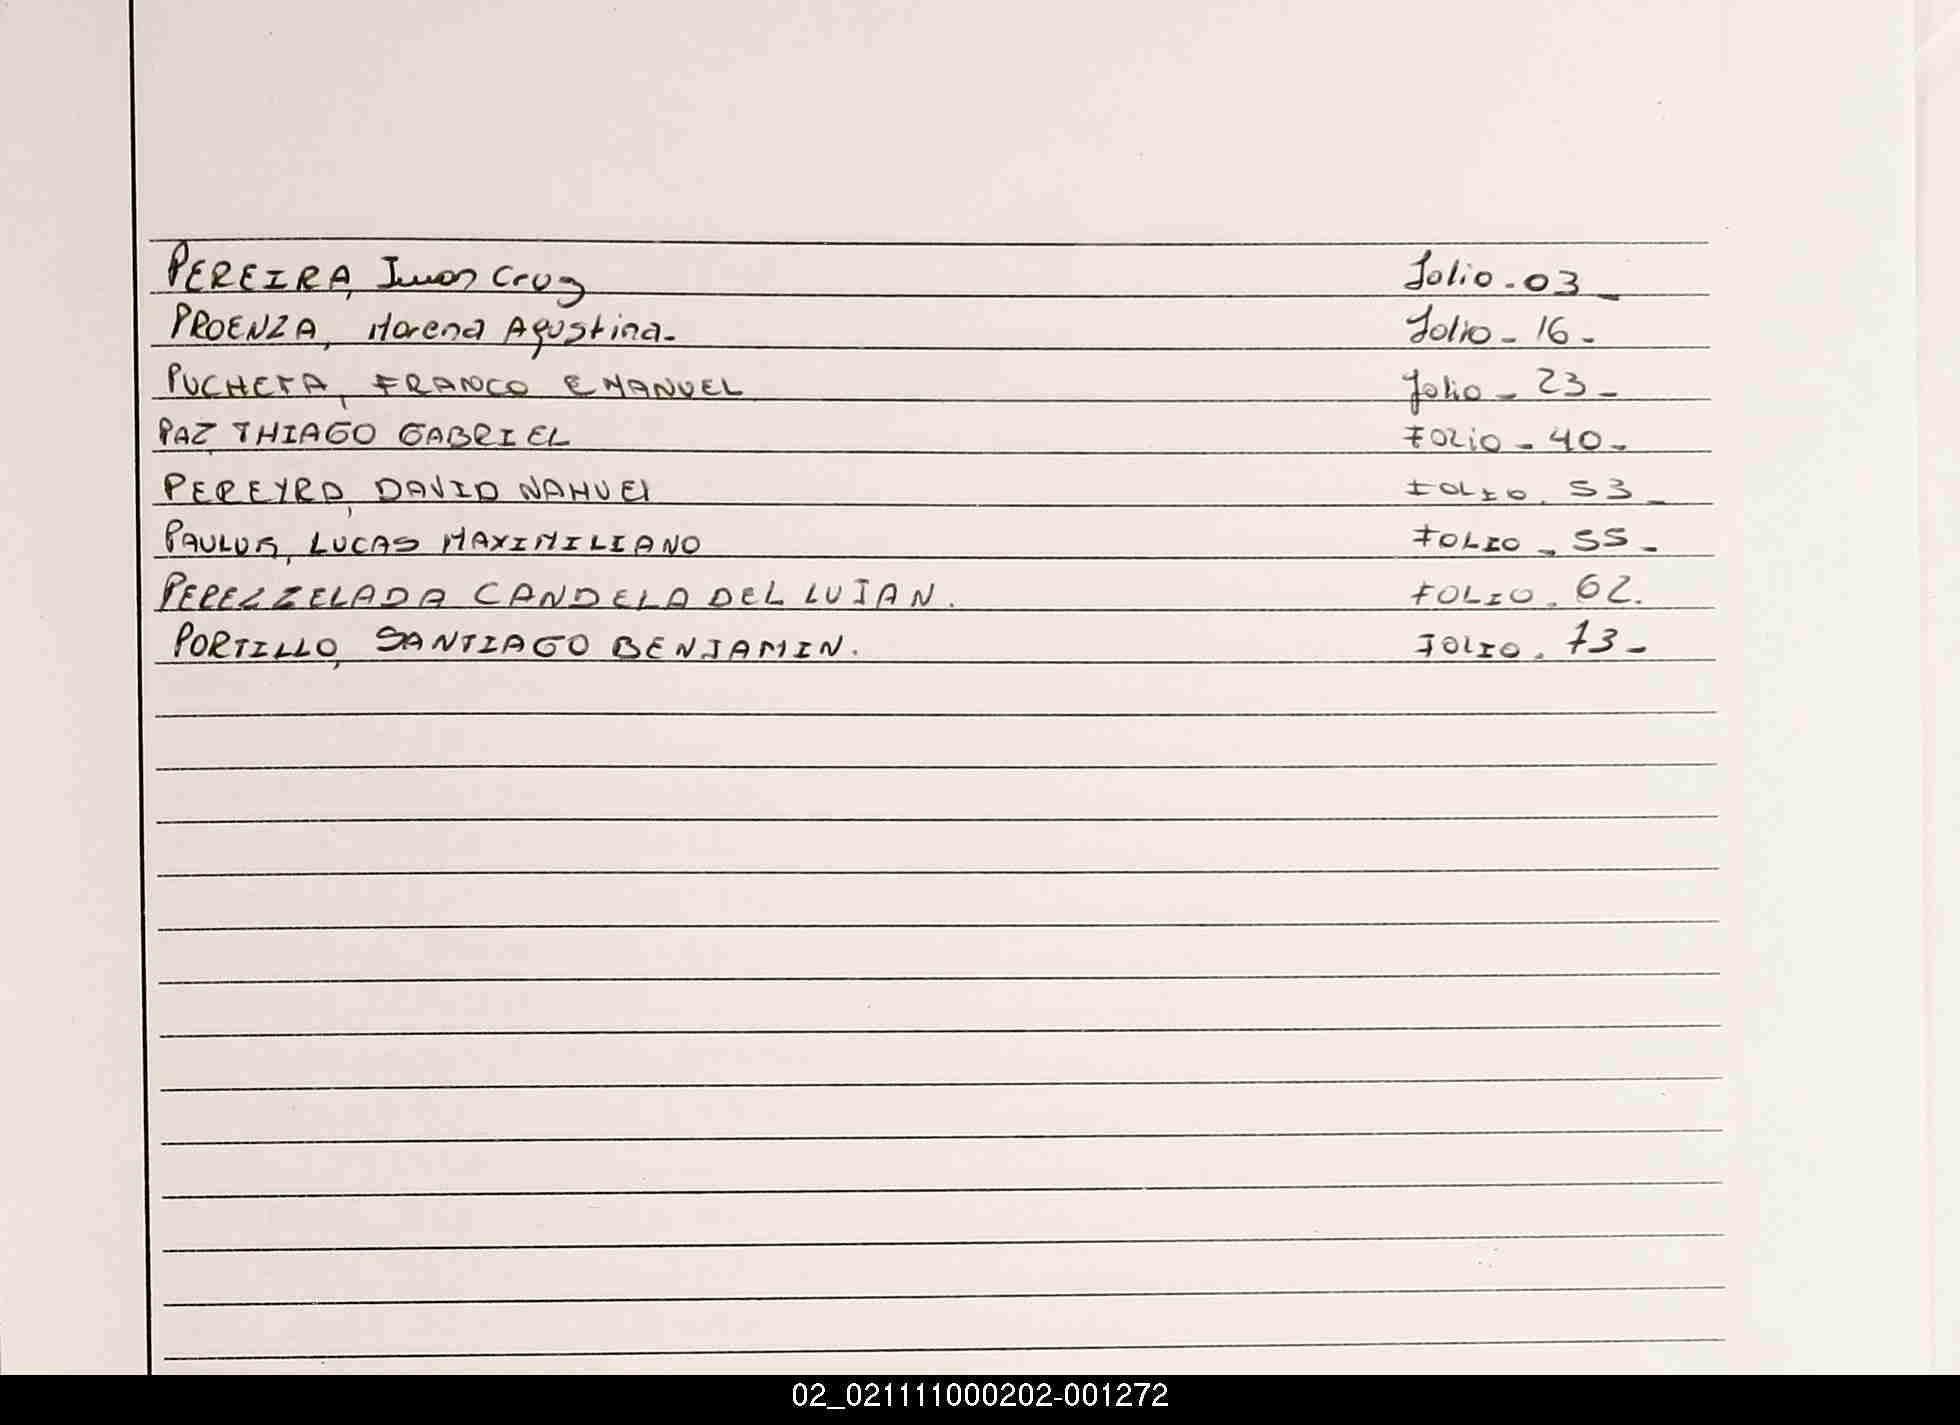 PEREIRA, Juan Cruz Folio - 03 _
PROENZA, Morena Agustina. Folio - 16 -
PUCHETA, FRANCO EMANUEL Folio - 23 -
PAZ THIAGO GABRIEL FOLIO - 40 -
PEREYRA, DAVID NAHUEl FOLIO . 53 _
PAULUS, LUCAS MAXIMILIANO FOLIO - 55 -
PEREZ ZELADA CANDELA DEL LUJAN. FOLIO . 62.
PORTILLO, SANTIAGO BENJAMIN. FOLIO . 73 -
02_021111000202-001272